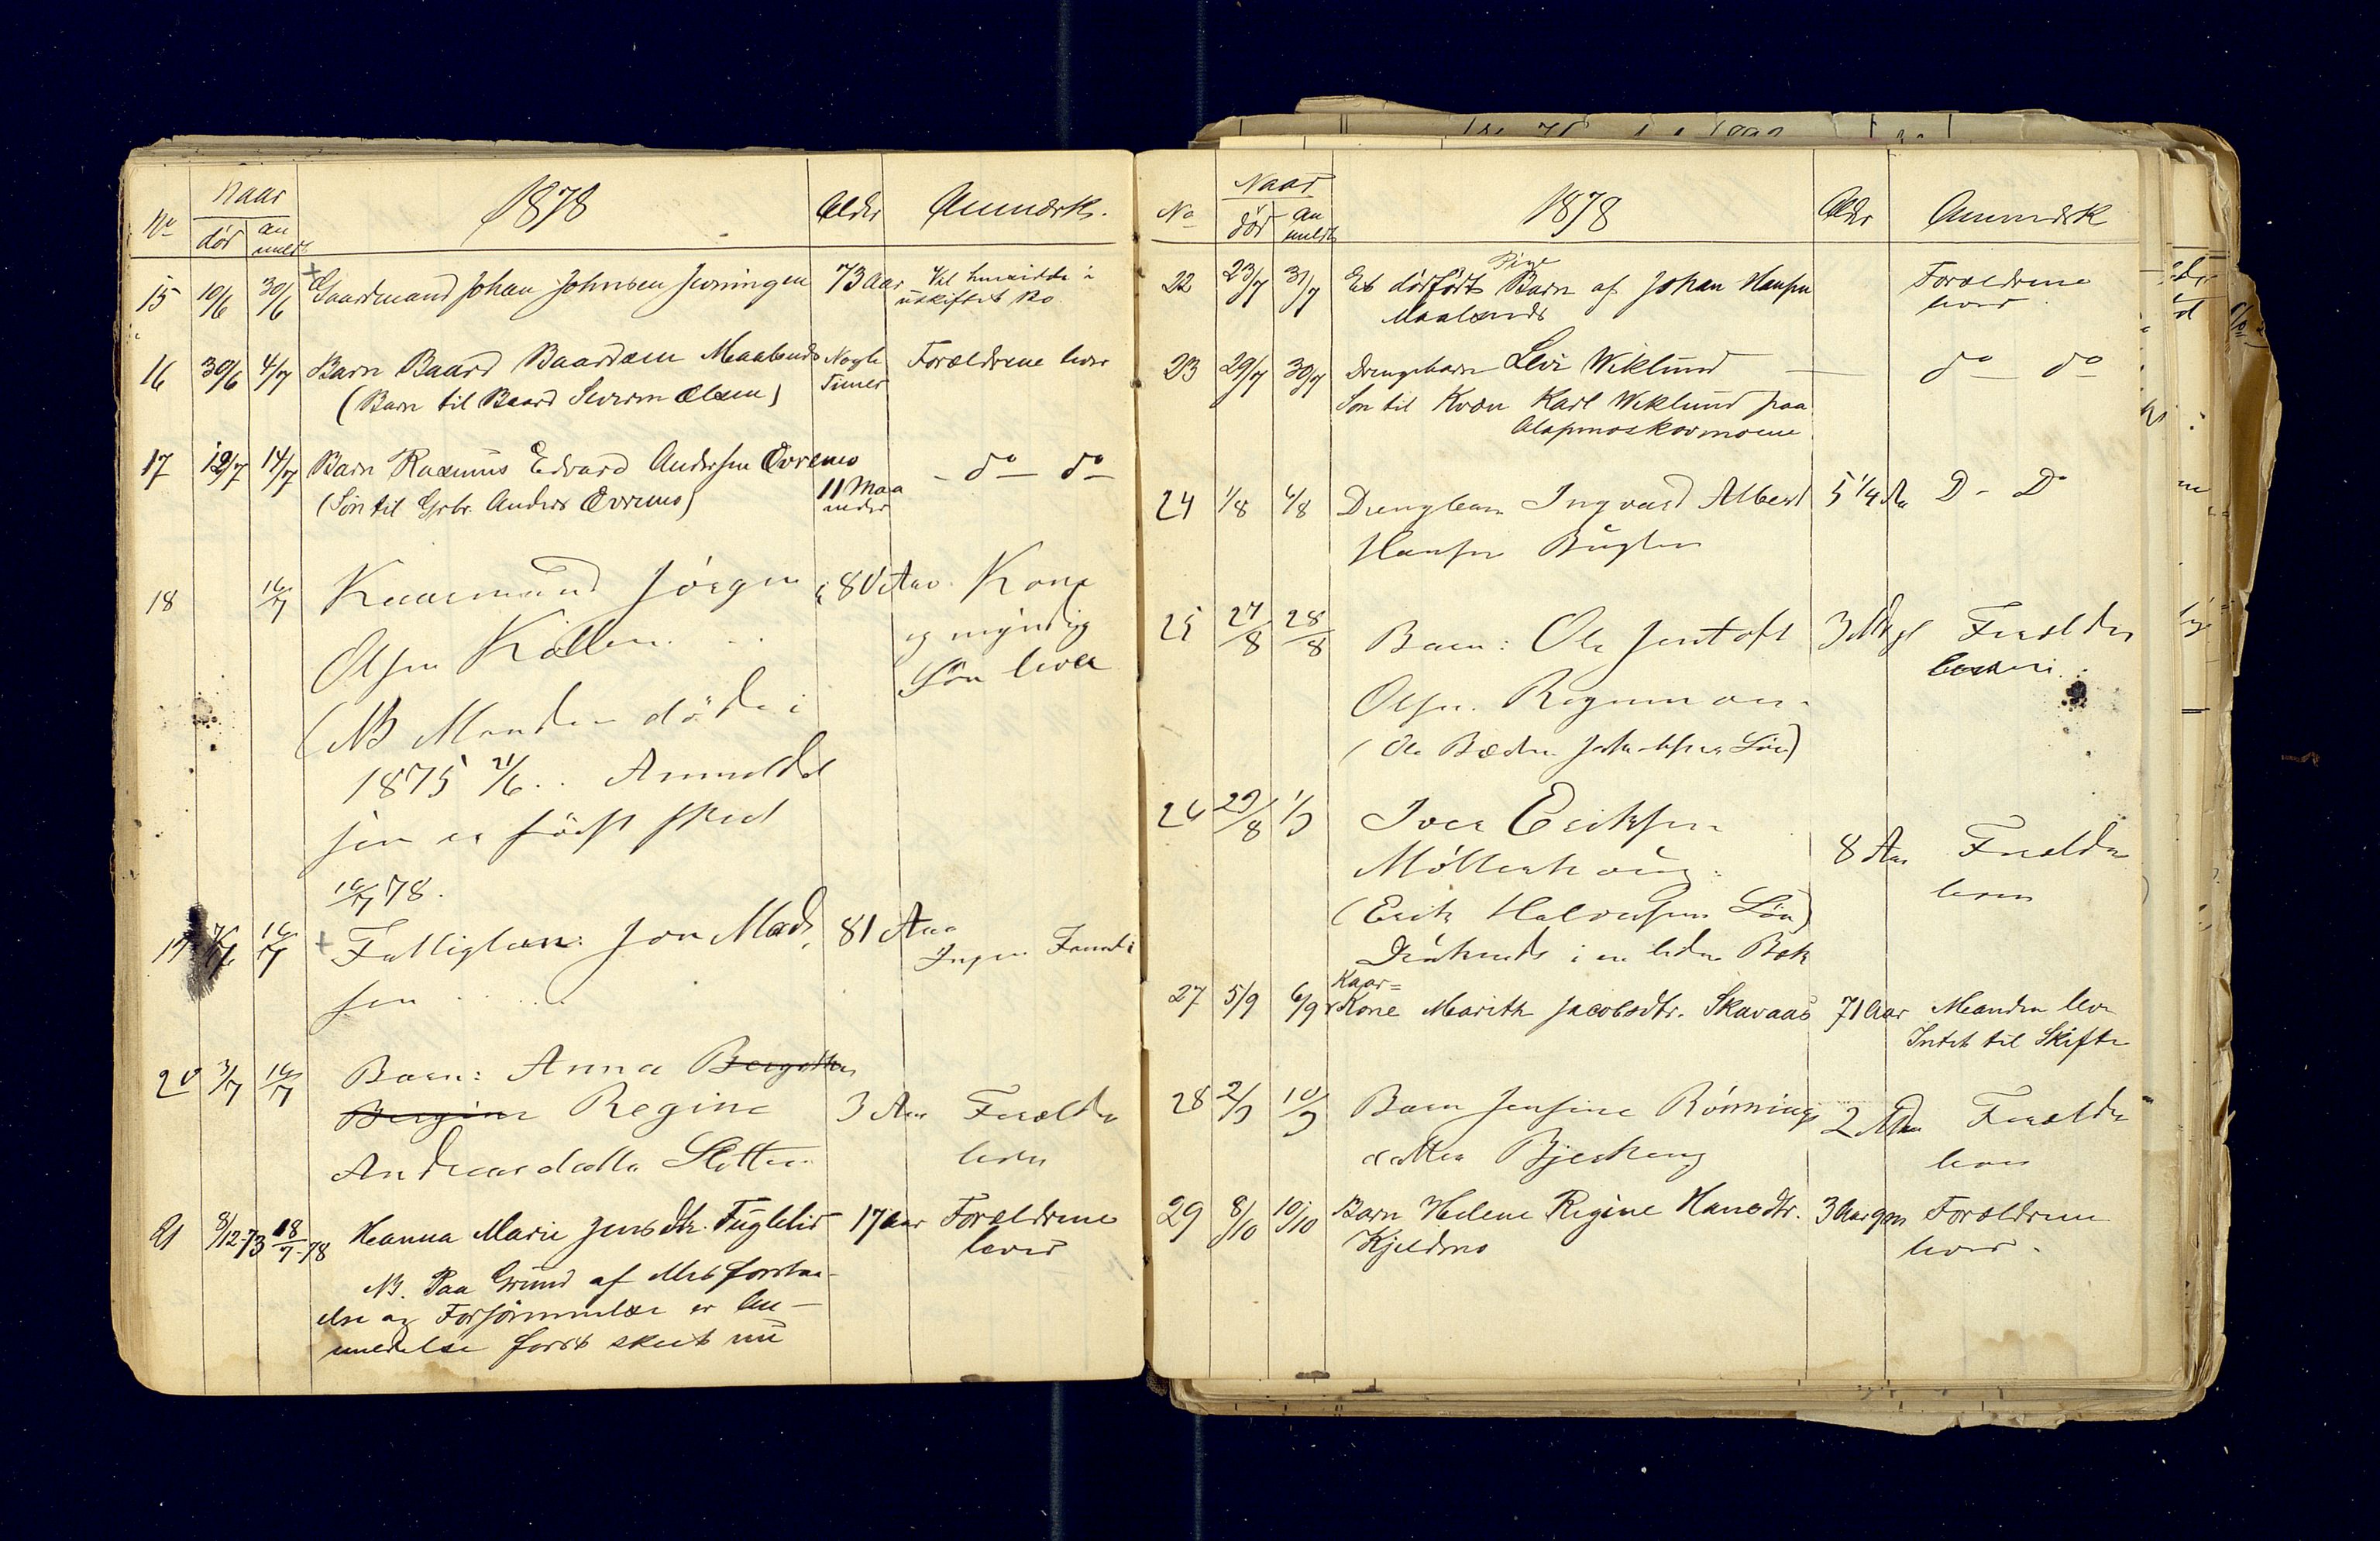 No Naar 1878 Alder Anmærk.
død an
meldt
15 10/6 30/6 Gaardmand Johan Johnsen 73 Aar
uskiftet Bo
16 30/6 4/7 Barn Baard Baardsen Maalsnes Nogle Forældrene lever
(Barn til Baard Severin Olsen) Timer
17 12/7 14/7 Barn Rasmus Edvard Andersen Øvremo - do - do -
(Søn til Gbr. Anders Øvremo) 11 Maa
neder
18 16/7 Kaarmand Jörgen 80 Aar Kone
Olsen Kollen og myndig
Søn lever
(NB Manden döde i
1875 21/6 .. Anmeldel
sen er först skeet
16/7 78.
19 16/7 + Fattiglem: Jon Mad 81 Aar
sen Ingen
20 3/7 16/7 Barn: Anna Bergethe
Bergine Regine 3 Aar Forældre
Andreasdatter Sletten lever
21 8/12-73 18/7-78 Hanna Marie Jensdtr. Fuglelid 17 Aar Forældrene
lever
NB. Paa Grund af Misforstaa-
else og Forsömmelse er An-
meldelse först skeet nu
No Naar 1878 Alder Anmærk
död an
meldt
Pige
22 23/7 31/7 Et dödfödt Barn af Johan Hansen Forældrene
Maalsnes lever
23 29/7 30/7 Drengebarn Levi Wiklund — do — do
Sön til Kvæn Karl Wiklund paa
24 1/8 6/8 Drengebarn Ingvard Albert 5 1/4 Aa D - Do
Hansen
25 27/8 28/8 Barn: Ole Jentoft 3 Forældre
Olsen
(Ole Søn)
26 29/8 1/9 Iver Eriksen
Möllerhaug 8 Aar Forældre
lever
(Erik Halvorsens Søn)
Druknede i en liden Bæk
Kaar=
27 5/9 6/9 Kone Marith Jacobsdtr. Skavaas 71 Aar Manden lever
Intet til Skifte
28 2/9 10/9 Barn Jensine Rönnings 2 Forældre
datter Bjerkeng lever
29 8/10 10/10 Barn Helene Regine Hansdtr. 3 Aar 9 m Forældrene
Kjeldmo lever.